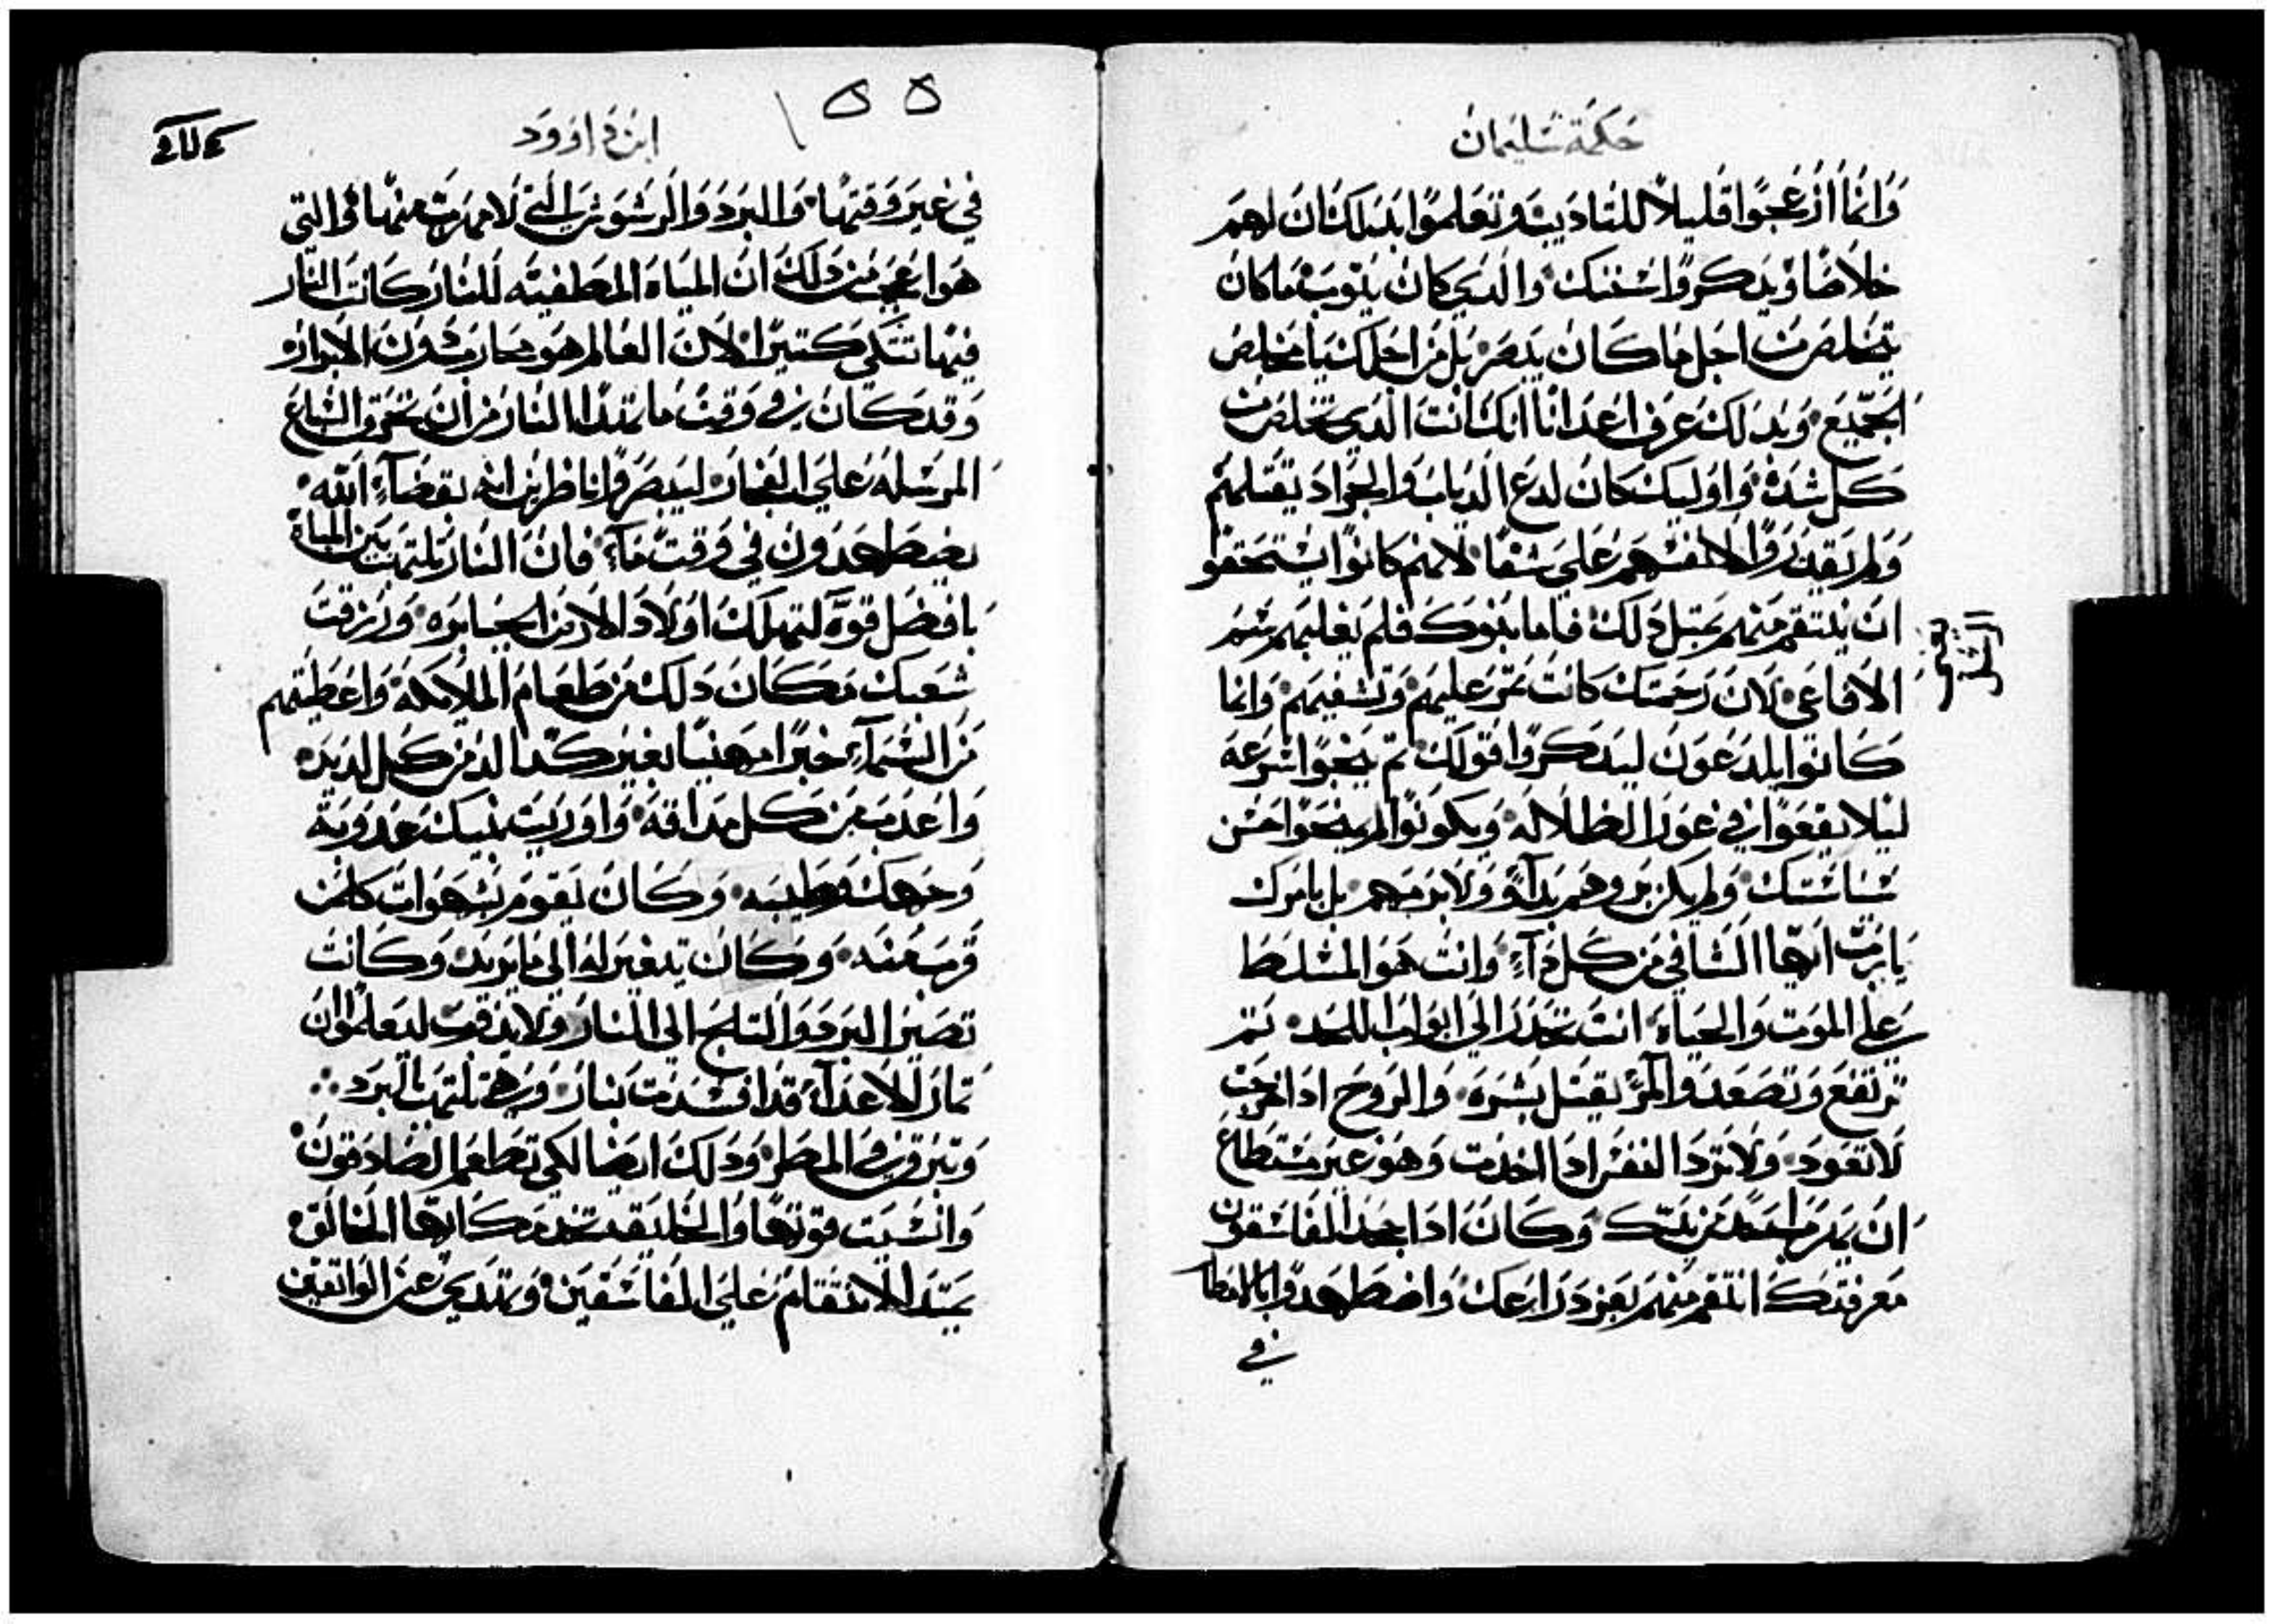 حكمة سليمان
وانما ازعجوا قليلا للتاديب وتعلموا بدلك ان لهم
خلاصا ويدكروا سنتك والدي كان يتوب ما كان
يتخلص من اجل ما كان يبصر بل من اجلك يا مخلص
الجميع وبدلك عرف اعدانا انك انت الدي تخلص من
كل شده واوليك كان لدع الدباب والجراد يقتلهم
ولم يقدروا لانفسهم على شفا لانهم كانوا يستحقوا
ان ينتقم منهم بمتل دلك فاما بنوك فلم يغلبهم سم
الافاعي لان رحمتك كانت تمر عليهم وتشفيهم وانما
كانوا يلدعون ليدكروا قولك تم ينجوا سرعه
ليلا يقعوا في غور الظلاله ويكونوا لم ينجوا من
ولم يكن بروهم بدآوٍ ولا بمرهم بل بامرك
يا رب ايها الشافي من كل دآءٍ وانت هو المسلط
على الموت والحياه انت تحدر الي ابواب اللحد تم
ترتفع وتصعد والمرؤ يقتل بشره والروح ادا خرجت
لا تعود ولا ترد النفس ادا اخدت وهو غير مستطاع
ان يهرب احد من يدك وكان ادا جحد الفاسقون
معرفتك انتقم منهم بعز دراعك واضطهدوا بالامطار
في
ابن داوود
في غير وقتها والبرد والتي لا مهرب منها والتي
هو اعجب من دلك ان المياه المطفيه للنار كانت النار
فيها تتدكي كتيرا لان العالم هو محارب دون الابرار
وقد كان في وقت ما تهدا النار من ان تحرق السباع
المرسله على الفجار ليبصروا ناظرين انه بقضآءِ الله
يضطهدون في وقت مآءٍ فان النار تلتهب بين المياه
بافضل قوة لتهلك اولاد الارض الجبابره ورزقت
شعبك مكان دلك من طعام الملايكه واعطيتهم
من السمآءِ خبزا مهنيا بغير كد الد من كل لديده
واعدب من كل مداقه واوريت بنيك عدوبة
وجهك وطيبه وكان يقوم بشهوات كل من
قرب منه وكان يتغير له الى ما يريد وكانت
تصير البرد والتلج الي النار ولا يدوب ليعلموا ان
تمار الاعدآء قد افسدت بنار وهي تلتهب بالبرد
وتبرق في المطر ودلك ايضا لكي تطعم الصادقون
وانسيت قوتها والخليقه تخدمك ايها الخالق
يشتد الانتقام على الفاسقين وتندي عن الواتقين